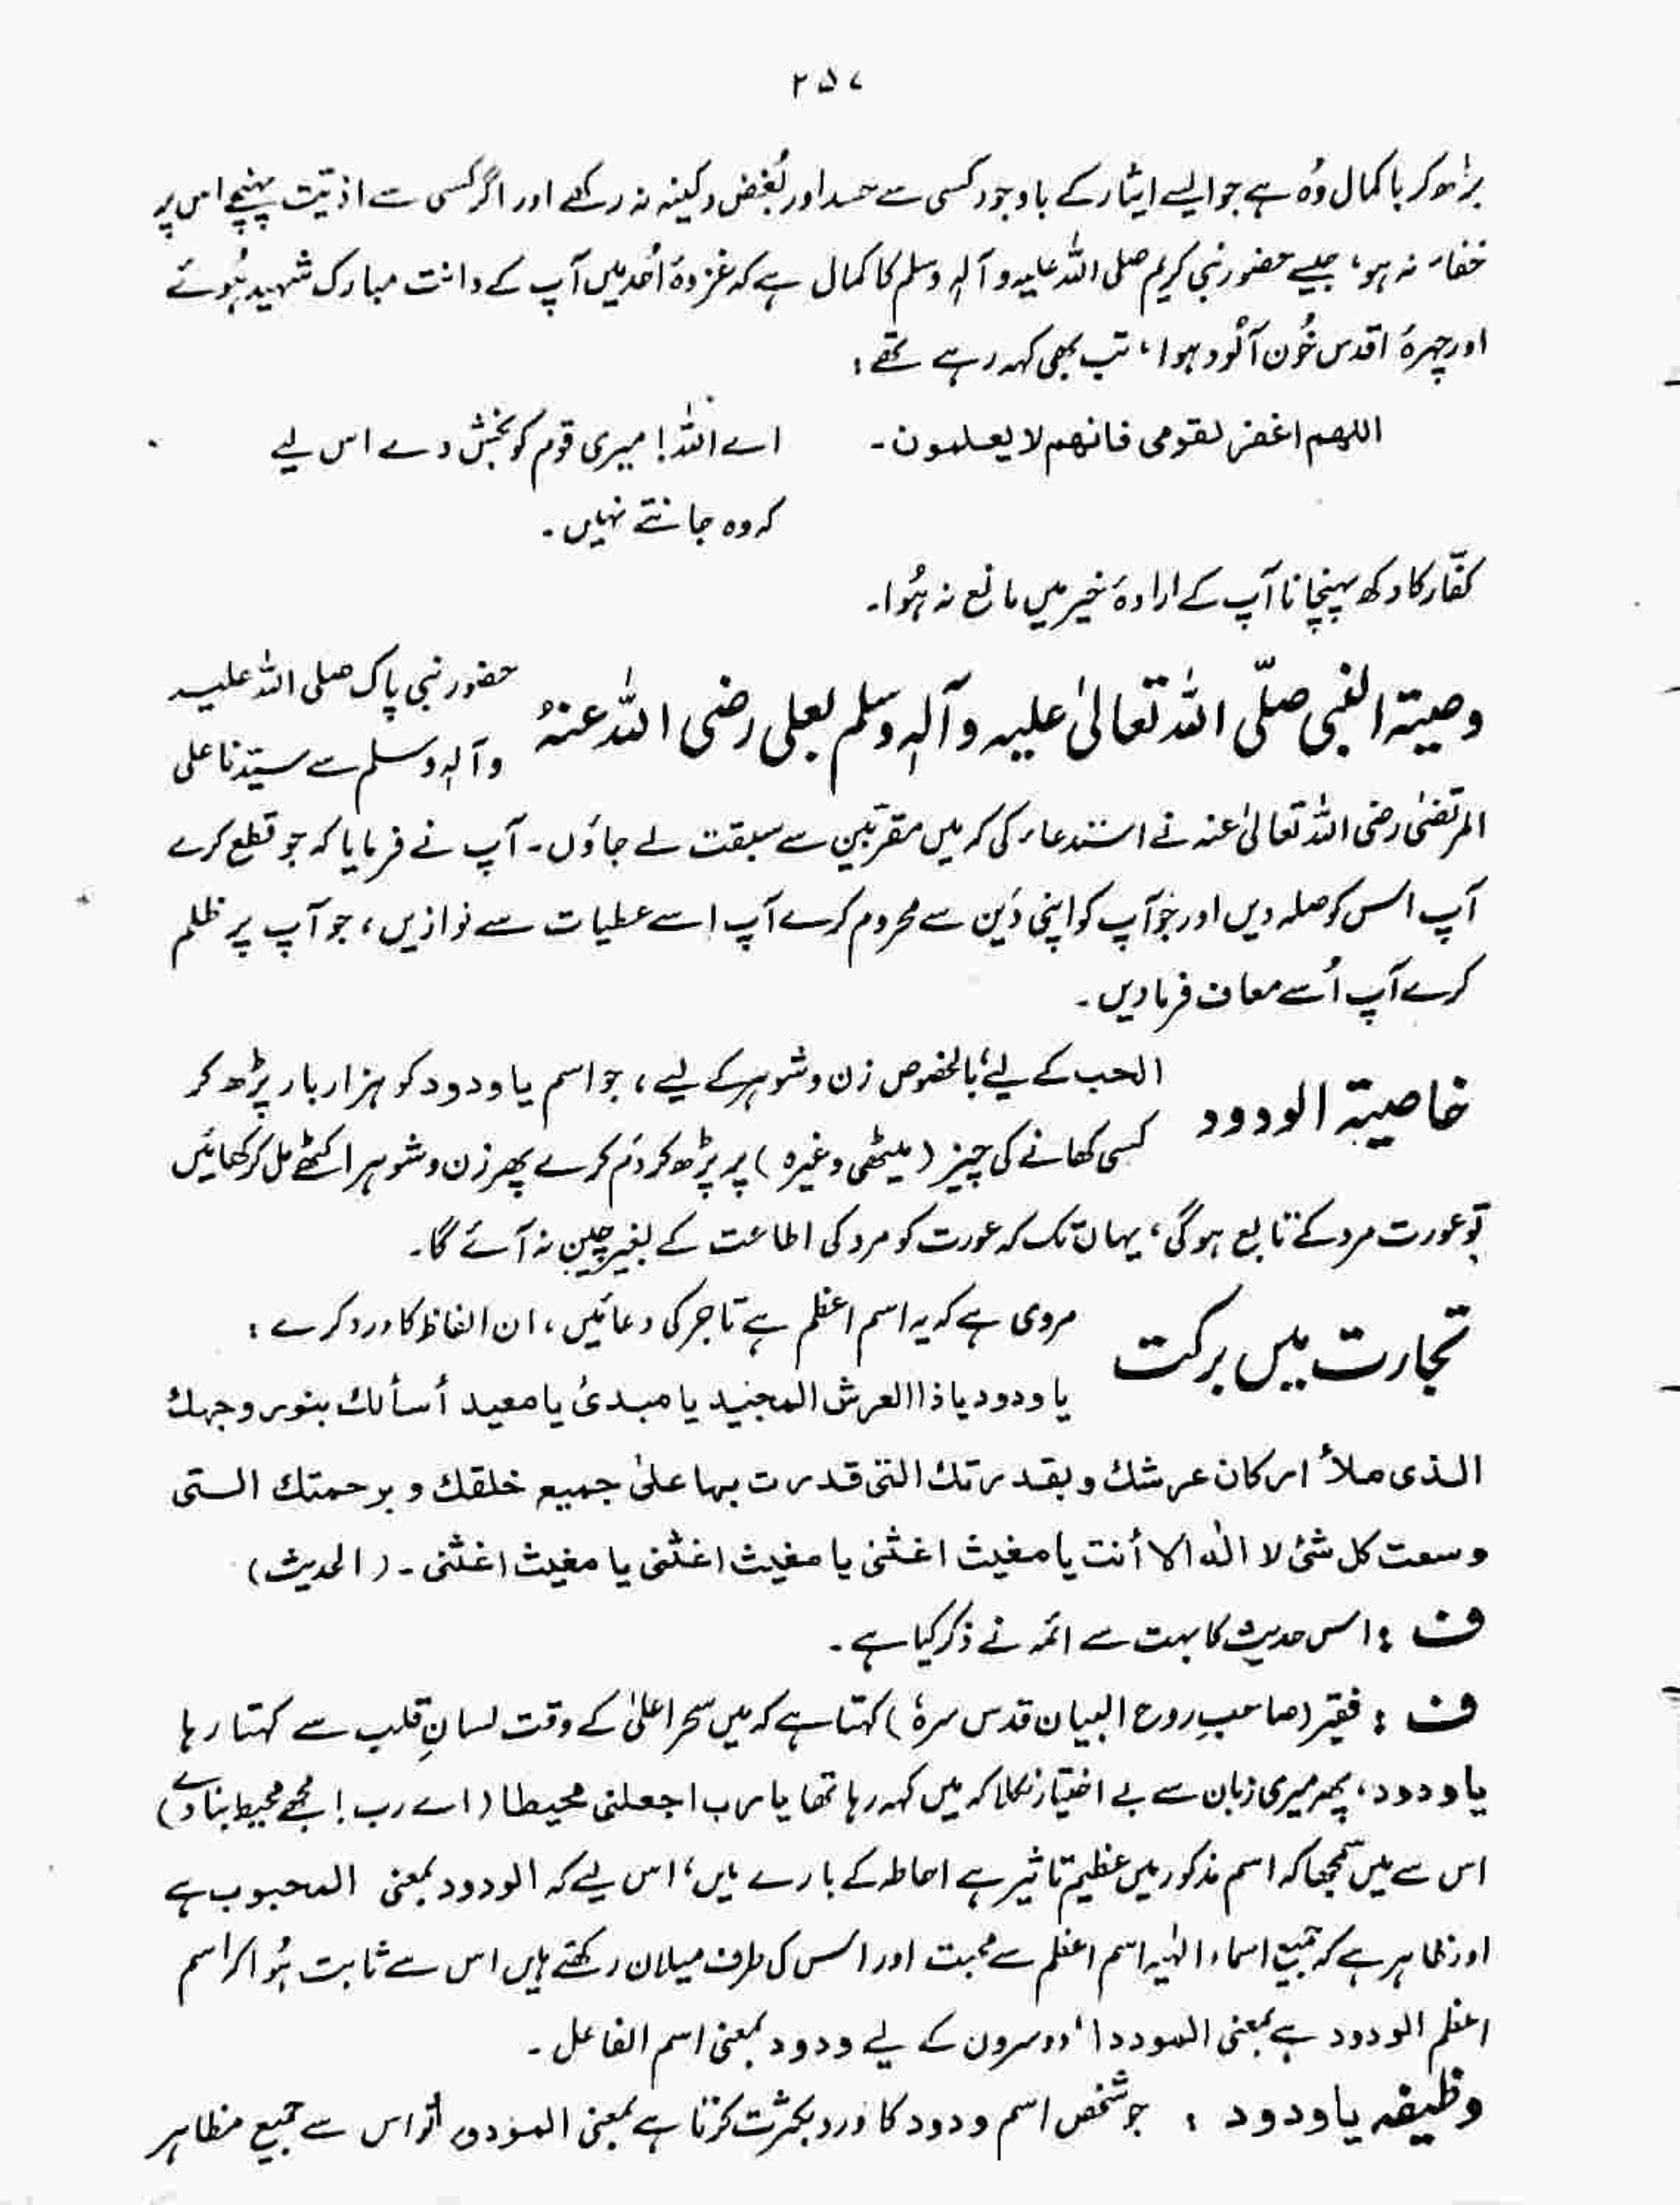 ۲۵۷
بڑھ کر باکمال وُہ ہے جو ایسے ایثار کے باوجود کسی سے حسد اور بُغض و کینہ نہ رکھے اور اگر کسی سے اذیّت پہنچے اس پر
خفا نہ ہو، جیسے حضور نبی کریم صلی اللہ علیہ و آلہٖ وسلم کا کمال ہے کہ غزوۂ اُحد میں آپ کے دانت مبارک شہید ہُوئے
اور چہرۂ اقدس خُون آلُود ہوا، تب بھی کہہ رہے تھے :
اللهم اغفر لقومی فانهم لا یعلمون۔ اے اللہ! میری قوم کو بخش دے اس لیے
کہ وہ جانتے نہیں۔
کفّار کا دکھ پہنچانا آپ کے ارادۂ خیر میں مانع نہ ہُوا۔
وصیۃ النبی صلّی اللہ تعالیٰ علیہ و آلہٖ وسلم لعلی رضی اللہ عنہٗ حضور نبی پاک صلی اللہ علیہ
و آلہٖ وسلم سے سیّدنا علی
المرتضیٰ رضی اللہ تعالیٰ عنہ نے استدعاء کی کہ میں مقربین سے سبقت لے جاؤں۔ آپ نے فرمایا کہ جو قطع کرے
آپ اس کو صلہ دیں اور جو آپ کو اپنی دَین سے محروم کرے آپ اسے عطیات سے نوازیں، جو آپ پر ظلم
کرے آپ اُسے معاف فرما دیں۔
خاصیۃ الودود الحب کے لیے، بالخصوص زن و شوہر کے لیے، جو اسم یا ودود کو ہزار بار پڑھ کر
کسی کھانے کی چیز (میٹھی وغیرہ) پر پڑھ کر دَم کرے پھر زن و شوہر اکٹھے مل کر کھائیں
تو عورت مرد کے تابع ہوگی، یہاں تک کہ عورت کو مرد کی اطاعت کے بغیر چین نہ آئے گا۔
تجارت میں برکت مروی ہے کہ یہ اسم اعظم ہے تاجر کی دعا میں، ان الفاظ کا ورد کرے :
یا ودود یا ذا العرش المجید یا مبدئ یا معید أسألك بنور وجهك
الذی ملأ ارکان عرشك و بقدرتك التی قدرت بها علیٰ جمیع خلقك و برحمتك التی
وسعت کل شئ لا الٰه الا أنت یا مغیث اغثنی یا مغیث اغثنی یا مغیث اغثنی۔ (الحدیث)
ف : اس حدیث کا بہت سے ائمہ نے ذکر کیا ہے۔
ف : فقیر (صاحبِ روح البیان قدس سرہٗ) کہتا ہے کہ میں سحرِ اعلیٰ کے وقت لسانِ قلب سے کہتا رہا
یا ودود، پھر میری زبان سے بے اختیار نکلا کہ میں کہہ رہا تھا یا رب اجعلنی محیطا (اے رب! مجھے محیط بنا دے)
اس سے میں سمجھا کہ اسم مذکور میں عظیم تاثیر ہے احاطہ کے بارے میں، اس لیے کہ الودود بمعنی المحبوب ہے
اور ظاہر ہے کہ جمیع اسماء الٰہیہ اسم اعظم سے محبت اور اس کی طرف میلان رکھتے ہیں اس سے ثابت ہُوا کہ اسم
اعظم الودود ہے بمعنی المودود، دوسروں کے لیے ودود بمعنی اسم الفاعل۔
وظیفہ یا ودود : جو شخص اسم ودود کا وِرد بکثرت کرتا ہے بمعنی المودود تو اس سے جمیع مظاہر